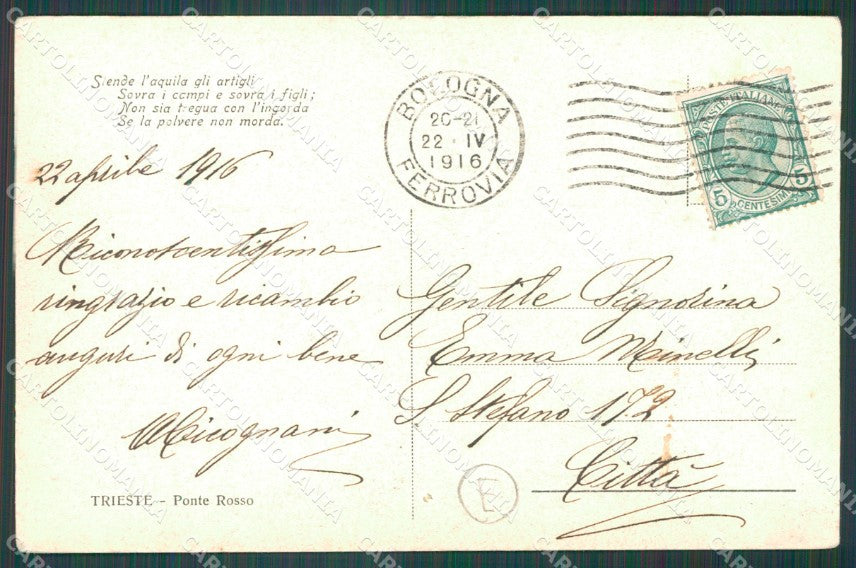 Stende l'aquila gli artigli
Sovra i campi e sovra i figli;
Non sia tregua con l'ingorda
Se la polvere non morda.
BOLOGNA
20-21
22 · IV
1916
FERROVIA
POSTE ITALIANE
5 5
CENTESIMI
22 aprile 1916
Riconoscentissima
ringrazio e ricambio
auguri di ogni bene
Cicognani
TRIESTE - Ponte Rosso
Gentile Signorina
Emma Minelli
S. Stefano 172
Città
E
CARTOLINOMANIA